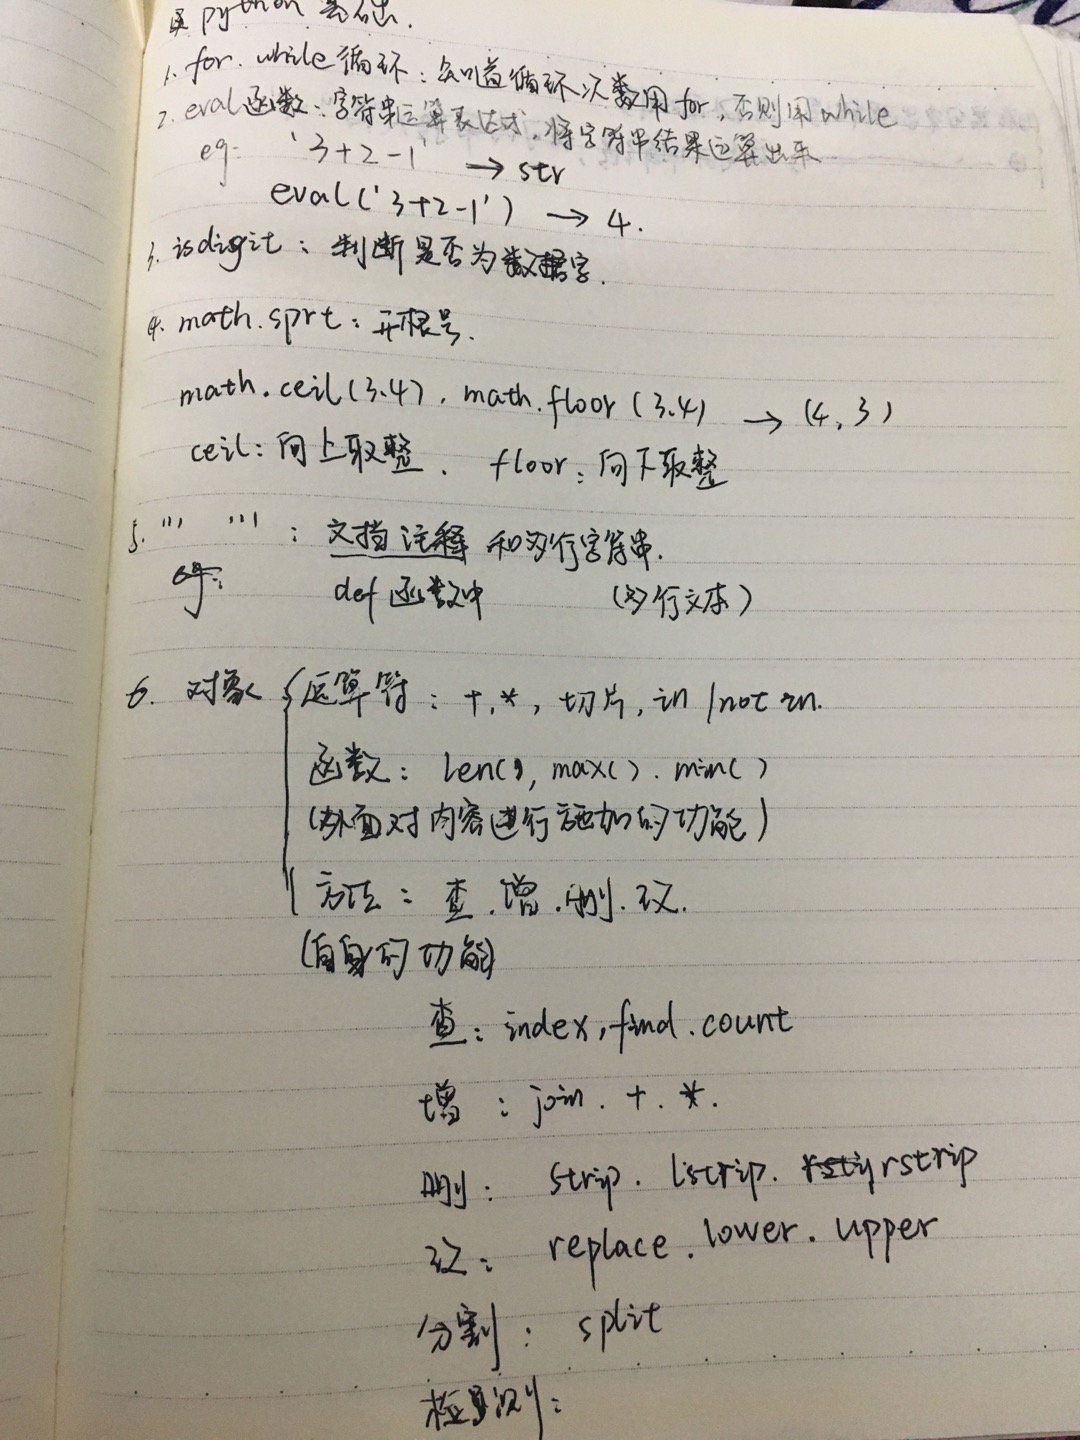 python 基础.
1. for. while 循环: 知道循环次数用 for, 否则用 while
2. eval 函数: 字符串运算表达式, 将字符串结果运算出来
eg: '3+2-1' → str
eval('3+2-1') → 4.
3. isdigit: 判断是否为数字.
4. math.sprt: 开根号.
math.ceil(3.4). math.floor(3.4) → (4, 3)
ceil: 向上取整. floor: 向下取整
5. ''' ''': 文档注释 和多行字符串.
def 函数中 (多行文本)
6. 对象 { 运算符: +, *, 切片, in / not in.
函数: len(), max(). min()
(外面对内容进行施加的功能)
方法: 查. 增. 删. 改.
(自身的功能)
查: index, find. count
增: join. +. *.
删: strip. lstrip. rstrip
改: replace. lower. upper
分割: split
检测: